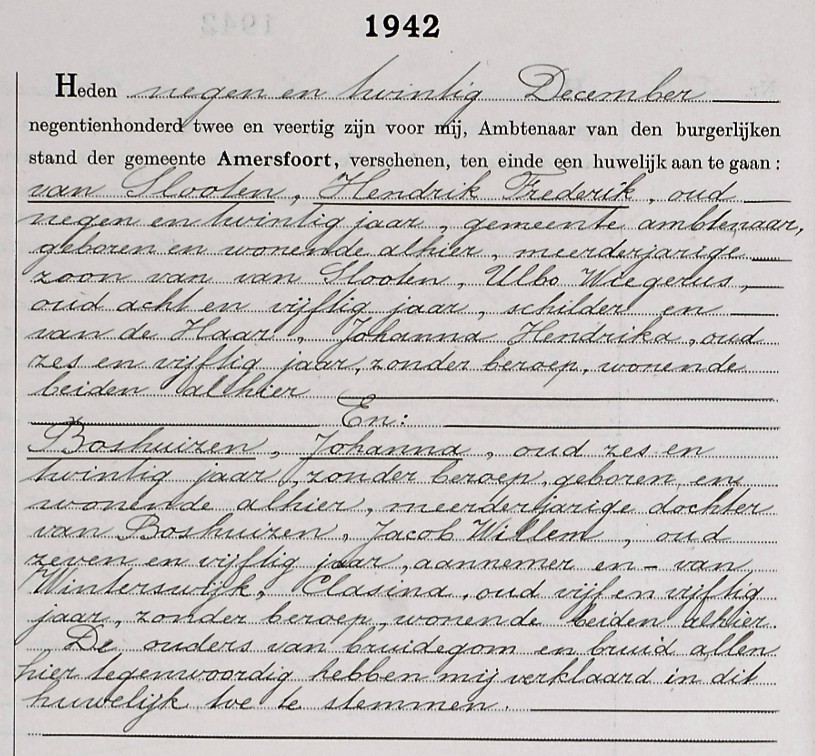 1942
Heden negen en twintig December
negentienhonderd twee en veertig zijn voor mij, Ambtenaar van den burgerlijken
stand der gemeente Amersfoort, verschenen, ten einde een huwelijk aan te gaan :
van Slooten, Hendrik Frederik, oud
negen en twintig jaar, gemeente ambtenaar,
geboren en wonende alhier, meerderjarige
zoon van van Slooten, Ulbo Wiegerus,
oud acht en vijftig jaar, schilder en
van de Haar, Johanna Hendrika, oud
zes en vijftig jaar, zonder beroep, wonende
beiden alhier
En:
Boshuizen, Johanna, oud zes en
twintig jaar, zonder beroep, geboren en
wonende alhier, meerderjarige dochter
van Boshuizen, Jacob Willem, oud
zeven en vijftig jaar, aannemer en - van
Winterswijk, Clasina, oud vijf en vijftig
jaar, zonder beroep, wonende beiden alhier.
De ouders van bruidegom en bruid allen
hier tegenwoordig hebben mij verklaard in dit
huwelijk toe te stemmen.